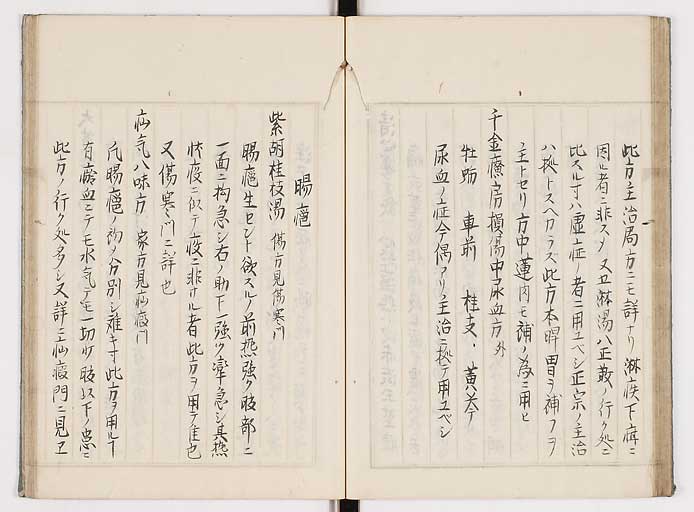 此方主治局方ニモ詳ナリ淋疾下疳ニ
因ル者ニ非スノ又五淋湯八正散ノ行ク処ニ
比スル寸ハ虚症ノ者ニ用ユベシ正宗ノ主治
ハ拠トスヘカラス此方本腎胃ヲ補フヲ
主トセリ方中蓮肉モ補ノ為ニ用ヒ
千金療房損傷中尿血方外
牡蛎 車前 桂支 黄芩
尿血ノ症今偶アリ主治ニ拠テ用ユベシ
腸癰
柴胡桂枝湯 傷方見傷寒門
腸癰生セント欲スルノ前熱強ク肢部ニ
一面ニ拘急シ右ノ助下一強ク攣急シ其熱
状疫ニ似テ疫ニ非サル者此方ヲ用テ佳也
又傷寒門ニ詳也
疝気八味方 家方見疝癥門
凡腸癰ノ初ノ分別シ難キ寸此方ヲ用ル
有瘀血ニテモ水気ニテモ一切ノ肢以下ノ患ニ
此方ノ行ク処多シ又詳ニ疝癥門ニ見エ